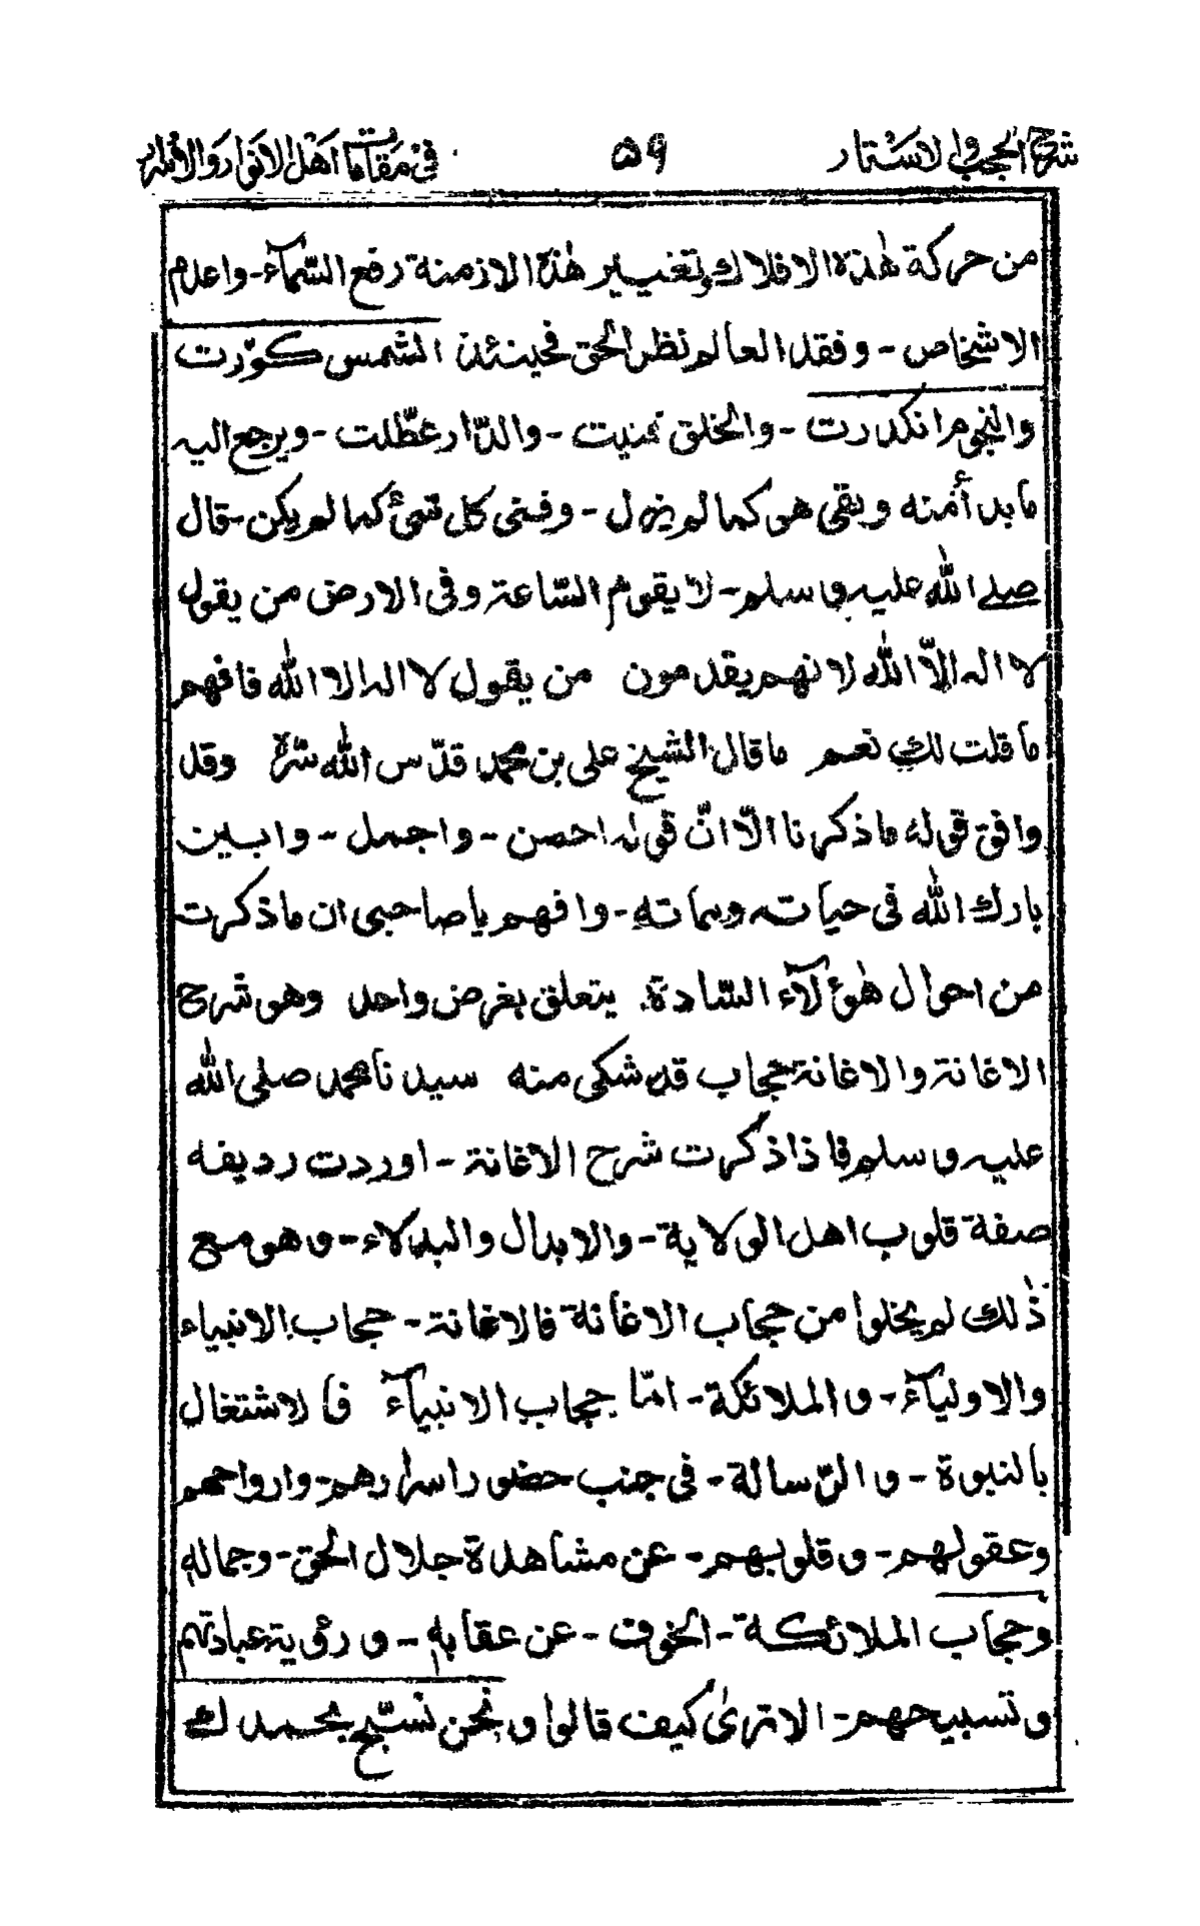 شرح الحجب والاستار ٥٩ فى مقامات اهل الانوار والاسرار
من حركة هٰذة الافلاك وتغيير هٰذة الازمنة رفع السّمآء - واعدم
الاشخاص - وفقد العالم نظر الحق فحينئذ الشمس كوّرت
والنجوم انكدرت - والخلق فنيت - والدّار عطّلت - ويرجع اليه
ما بدأ منه وبقى هو كما لم يزل - وفنى كل شىء كما لم يكن - قال
صلے الله عليه وسلم - لا يقوم السّاعة وفى الارض من يقول
لا اله الّا الله لانهم يقدمون من يقول لا اله الا الله فافهم
ما قلت لك نعم ما قال الشيخ على بن محمد قدّس الله سرّه وقد
وافق قوله ما ذكرنا الّا انّ قوله احصن - واجمل - وابين
بارك الله فى حياته ومماته - وافهم يا صاحبى ان ما ذكرت
من احوال هٰؤلآء السّادة. يتعلق بغرض واحد وهو شرح
الاغانة والاغانة حجاب قد شكى منه سيدنا محمد صلى الله
عليه وسلم فاذا ذكرت شرح الاغانة - اوردت رديفه
صفة قلوب اهل الولاية - والابدال والبدلاء - وهو مع
ذٰلك لم يخلوا من حجاب الاغانة فالاغانة - حجاب الانبياء
والاوليآء - والملائكة - امّا حجاب الانبيآء فالاشتغال
بالنبوة - والرّسالة - فى جنب حضور اسرارهم - وارواحهم
وعقولهم - وقلوبهم - عن مشاهدة جلال الحق - وجماله
وحجاب الملائكة - الخوف - عن عقابه - ورؤية عبادتهم
وتسبيحهم - الا ترىٰ كيف قالوا ونحن نسبّح بحمدك